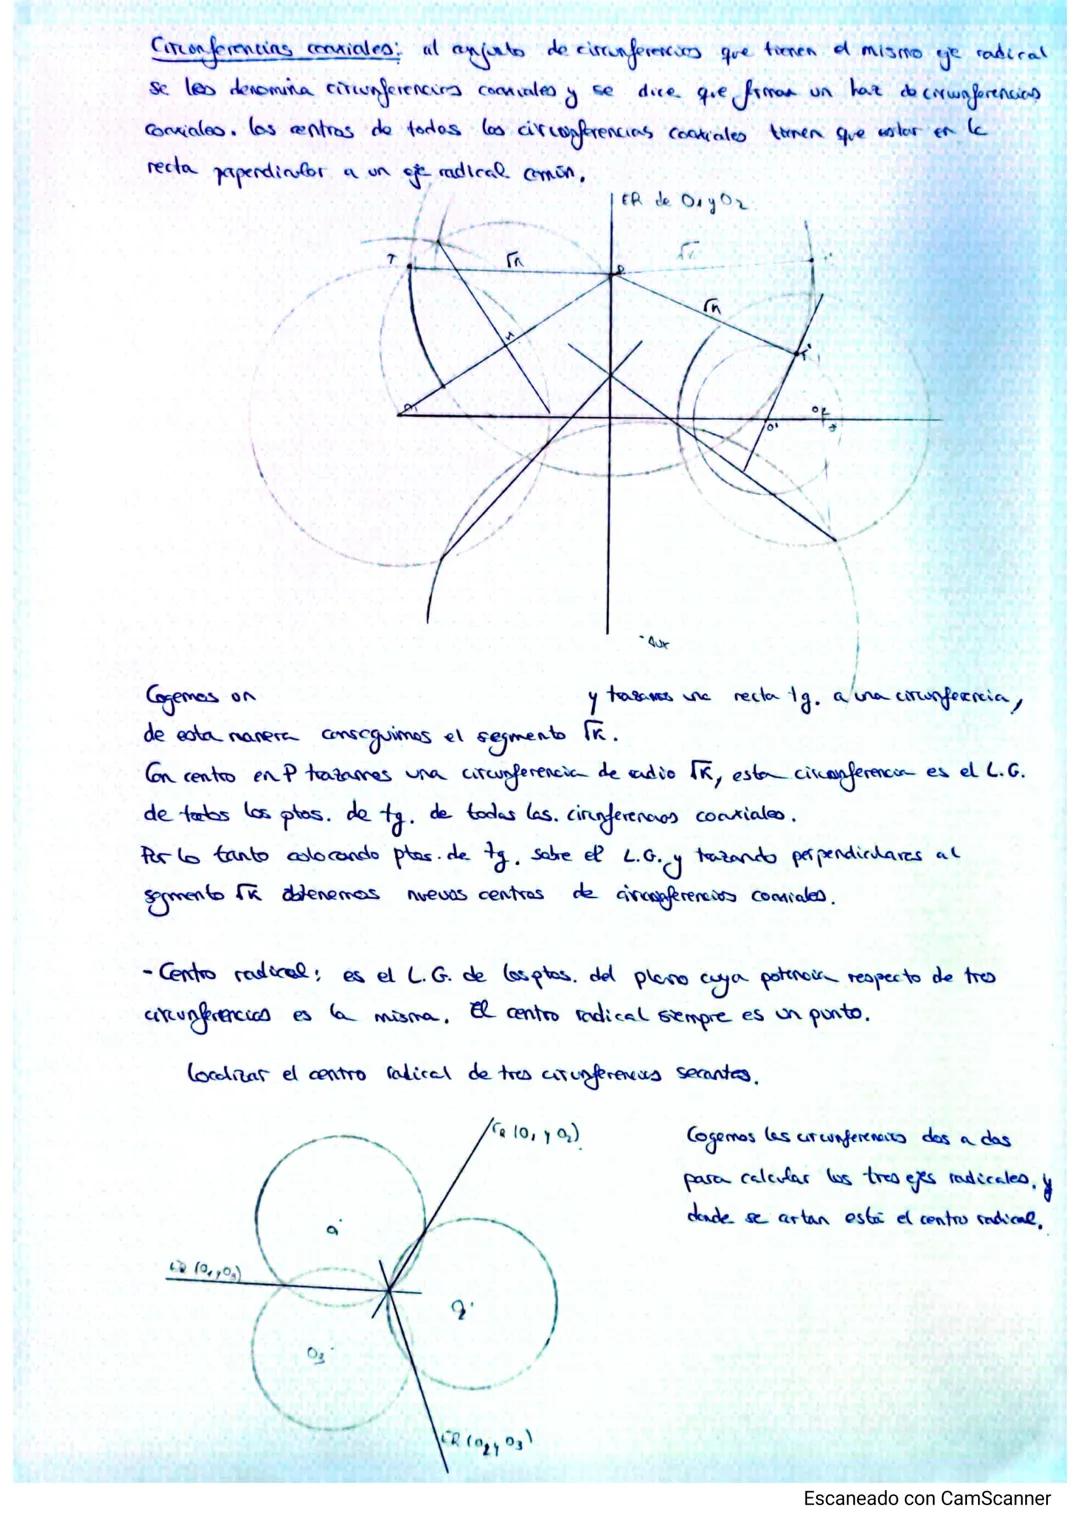 Circunferencias coaxiales: al conjunto de circunferencias que tienen el mismo eje radical
se les denomina circunferencias coaxiales y se dice que forman un haz de circunferencias
coaxiales. Los centros de todas las circunferencias coaxiales tienen que estar en la
recta perpendicular a un eje radical común.
ER de O1 y O2
T
√K
P
√K
√K
M
T'
O1
O'
O2
- Aux
Cogemos un y trazamos una recta tg. a una circunferencia,
de esta manera conseguimos el segmento √K.
Con centro en P trazamos una circunferencia de radio √K, esta circunferencia es el L.G.
de todos los ptos. de tg. de todas las. circunferencias coaxiales.
Por lo tanto colocando ptos. de tg. sobre el L.G. y trazando perpendiculares al
segmento √K obtenemos nuevos centros de circunferencias coaxiales.
- Centro radical: es el L.G. de los ptos. del plano cuya potencia respecto de tres
circunferencias es la misma. El centro radical siempre es un punto.
Localizar el centro radical de tres circunferencias secantes.
ER (O1 y O2)
Cogemos las circunferencias dos a dos
para calcular los tres ejes radicales, y
donde se cortan está el centro radical.
O1
ER (O1 y O3)
O2
O3
ER (O2 y O3)
Escaneado con CamScanner